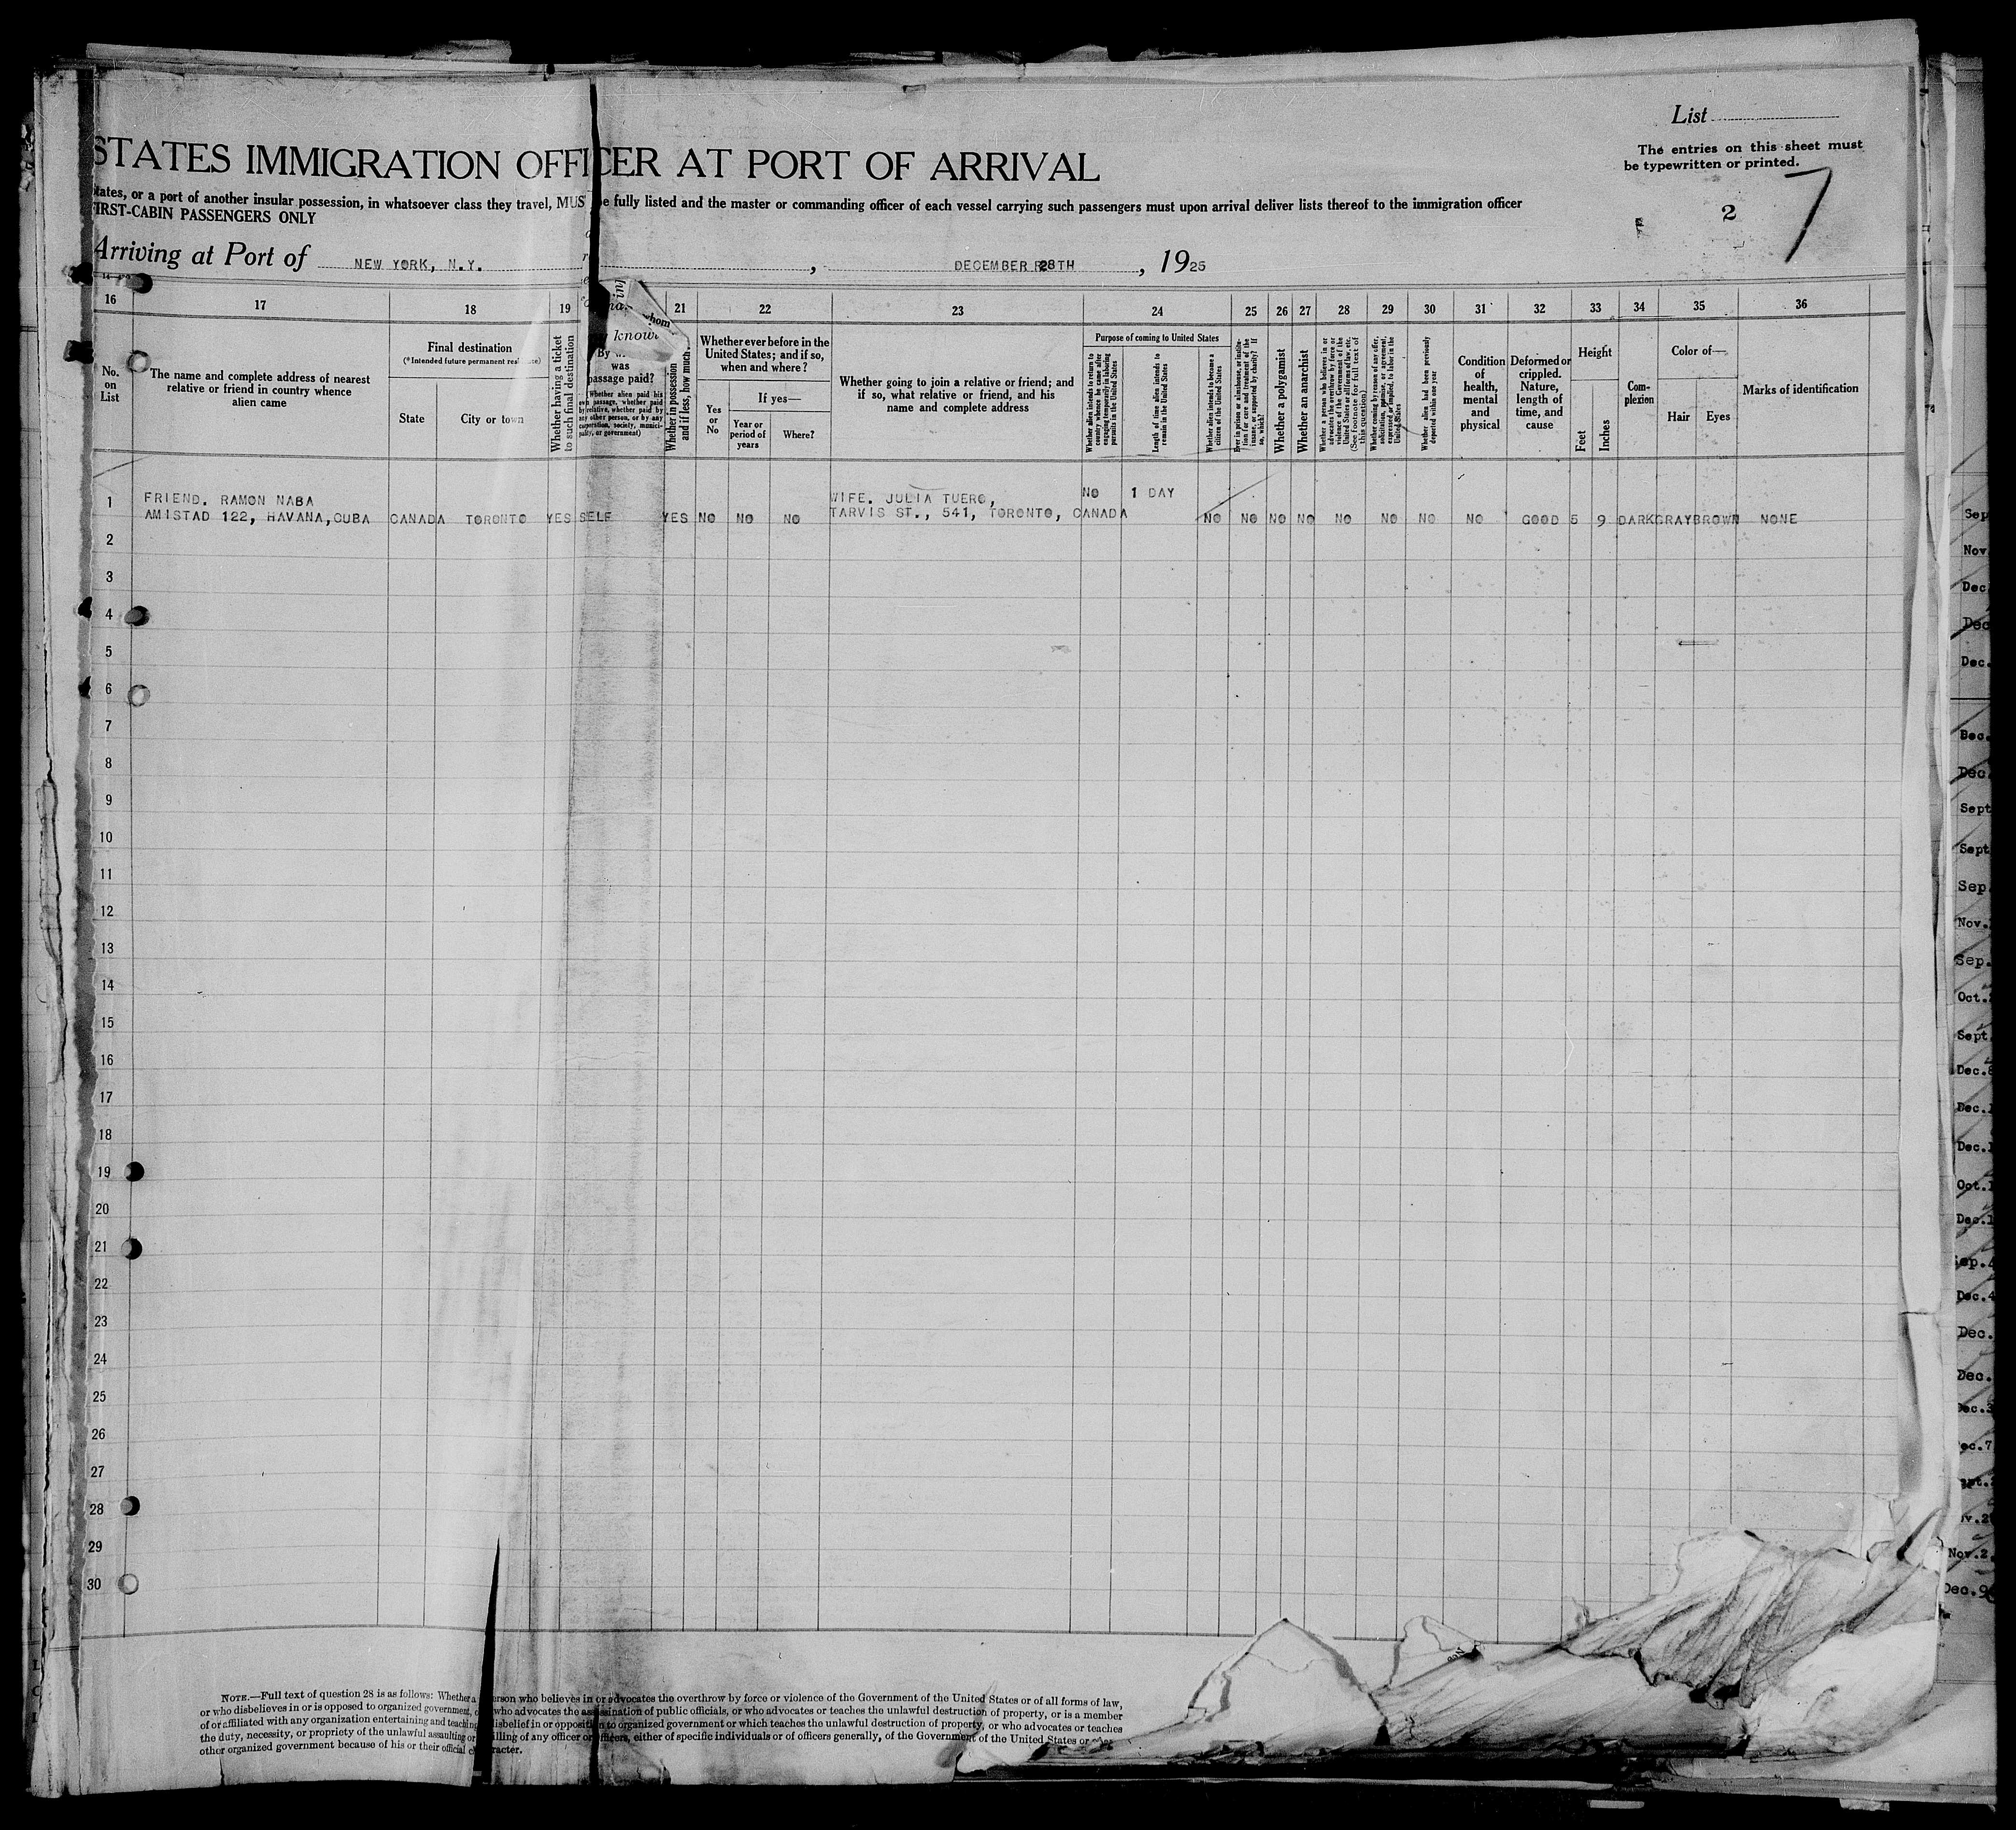 List
The entries on this sheet must
be typewritten or printed.
2 7
STATES IMMIGRATION OFFICER AT PORT OF ARRIVAL
tates, or a port of another insular possession, in whatsoever class they travel, MUS be fully listed and the master or commanding officer of each vessel carrying such passengers must upon arrival deliver lists thereof to the immigration officer
FIRST-CABIN PASSENGERS ONLY
Arriving at Port of NEW YORK, N.Y. , DECEMBER 28TH , 1925
16 17 18 19 21 22 23 24 25 26 27 28 29 30 31 32 33 34 35 36
No.
on
List
The name and complete address of nearest
relative or friend in country whence
alien came
Final destination
(*Intended future permanent
State
City or town
Whether having a ticket
to such final destination
whom
know
By
was
passage paid?
(Whether alien paid his
own passage, whether paid
by relative, whether paid by
any other person, or by any
corporation, society, munici-
pality, or government)
Whether in possession
and if less, how much
Whether ever before in the
United States; and if so,
when and where?
If yes—
Yes
or
No
Year or
period of
years
Where?
Whether going to join a relative or friend; and
if so, what relative or friend, and his
name and complete address
Purpose of coming to United States
Whether alien intends to return to
country whence he came after
engaging temporarily in laboring
pursuits in the United States
Length of time alien intends to
remain in the United States
Whether alien intends to become a
citizen of the United States
Ever in prison or almshouse, or institu-
tion for care and treatment of the
insane, or supported by charity? If
so, which?
Whether a polygamist
Whether an anarchist
Whether a person who believes in or
advocates the overthrow by force or
violence of the Government of the
United States or all forms of law, etc.
(See footnote for full text of
this question)
Whether coming by reason of any offer,
solicitation, promise, or agreement,
expressed or implied, to labor in the
United States
Whether alien had been previously
deported within one year
Condition
of
health,
mental
and
physical
Deformed or
crippled.
Nature,
length of
time, and
cause
Height
Feet
Inches
Com-
plexion
Color of—
Hair
Eyes
Marks of identification
1 FRIEND. RAMON NABA WIFE. JULIA TUERO, NO 1 DAY
AMISTAD 122, HAVANA, CUBA CANADA TORONTO YES SELF YES NO NO NO TARVIS ST., 541, TORONTO, CANADA NO NO NO NO NO NO NO NO GOOD 5 9 DARK GRAY BROWN NONE
2
3
4
5
6
7
8
9
10
11
12
13
14
15
16
17
18
19
20
21
22
23
24
25
26
27
28
29
30
Sep
Nov
Dec
Dec
Dec.
Dec.
Dec
Sept
Sept
Sep
Nov.
Sep.
Oct.
Sept.
Dec.8
Dec.1
Dec.1
Oct.1
Dec.1
ep.4
Dec.4
Dec.
Dec.
ec.3
ec.7
Nov.2
Dec.9
NOTE.—Full text of question 28 is as follows: Whether a person who believes in or advocates the overthrow by force or violence of the Government of the United States or of all forms of law,
or who disbelieves in or is opposed to organized government, o who advocates the assassination of public officials, or who advocates or teaches the unlawful destruction of property, or is a member
of or affiliated with any organization entertaining and teaching disbelief in or opposition to organized government or which teaches the unlawful destruction of property, or who advocates or teaches
the duty, necessity, or propriety of the unlawful assaulting or killing of any officer or officers, either of specific individuals or of officers generally, of the Government of the United States or
other organized government because of his or their official character.